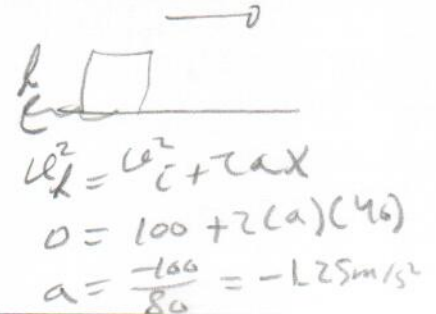 v²f = v²i + 2ax
0 = 100 + 2(a)(40)
a = -100/80 = -1.25m/s²